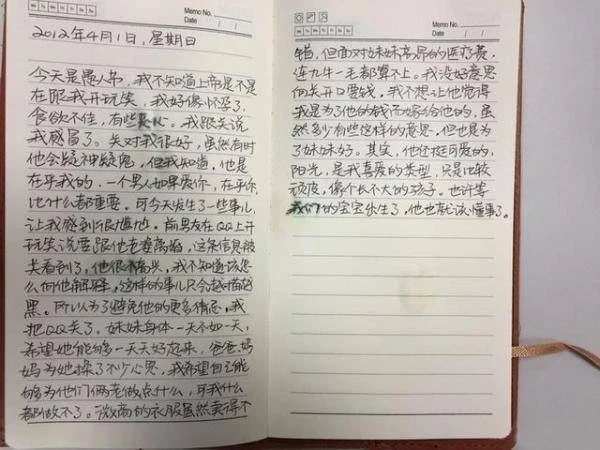 Memo No.
Mo Tu We Th Fr Sa Su
Date / /
2012年4月1日,星期日
今天是愚人节,我不知道上帝是不是
在跟我开玩笑,我好像怀孕了,
食欲不佳,有些恶心。我跟关说
我感冒了。关对我很好,虽然有时
他会疑神疑鬼,但我知道,他是
在乎我的,一个男人如果爱你,在乎你
比什么都重要。可今天发生了一些事儿,
让我感到很尴尬。前男友在QQ上开
玩笑说要跟他老婆离婚,这条信息被
关看到了,他很不高兴,我不知道该怎
么向他解释,这样的事儿只会越描越
黑。所以为了避免他的更多猜忌,我
把QQ关了。妹妹身体一天不如一天,
希望她能够一天天好起来,爸爸妈
妈为她操了不少心思,我希望自己能
够为他们俩老做点什么,可我什么
都做不了。微商的衣服虽然卖得不
Memo No.
Mo Tu We Th Fr Sa Su
Date / /
错,但面对妹妹高昂的医疗费,
连九牛一毛都算不上。我没好意思
向关开口要钱,我不想让他觉得
我是为了他的钱而嫁给他的,虽
然多少有些这样的意思,但也是为
了妹妹好。其实,他还挺可爱的,
阳光,是我喜爱的类型,只是比较
顽皮,像个长不大的孩子。也许等
我们的宝宝出生了,他也就该懂事了。